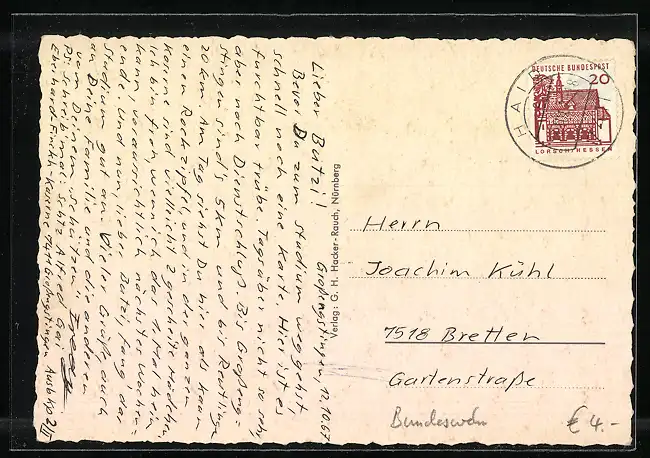 Großengstingen, 12.10.67
Lieber Butzi!
Bevor Du zum Studium weggehst,
schnell noch eine Karte. Hier ist es
furchtbar trübe. Tagsüber nicht so sehr,
aber nach Dienstschluß. Bis Großeng-
stingen sind's 5km und bis Reutlingen
20 km. Am Tag siehst Du hier als kaum
einen Rockzipfel, und in der ganzen
Kaserne sind vielleicht 2 gescheite Mädchen.
Ich bin froh, wenn ich das 1. Mal heim
kann, voraussichtlich nächstes Wochen-
ende. Und nun, lieber Butzi, fang' das
Studium gut an. Viele Grüße auch
an Deine Familie und die anderen
von Deinem
PS: Schreib mal: Schtz. Alfred
Eberhard-Finckh-Kaserne 7411 Großengstingen Ausb Kp 2/II
Verlag: G. H. Hacker-Rauch, Nürnberg
DEUTSCHE BUNDESPOST
20
LORSCH/HESSEN
HAID
Herrn
Joachim Kühl
7518 Bretten
Gartenstraße
Bundeswehr
€ 4.-